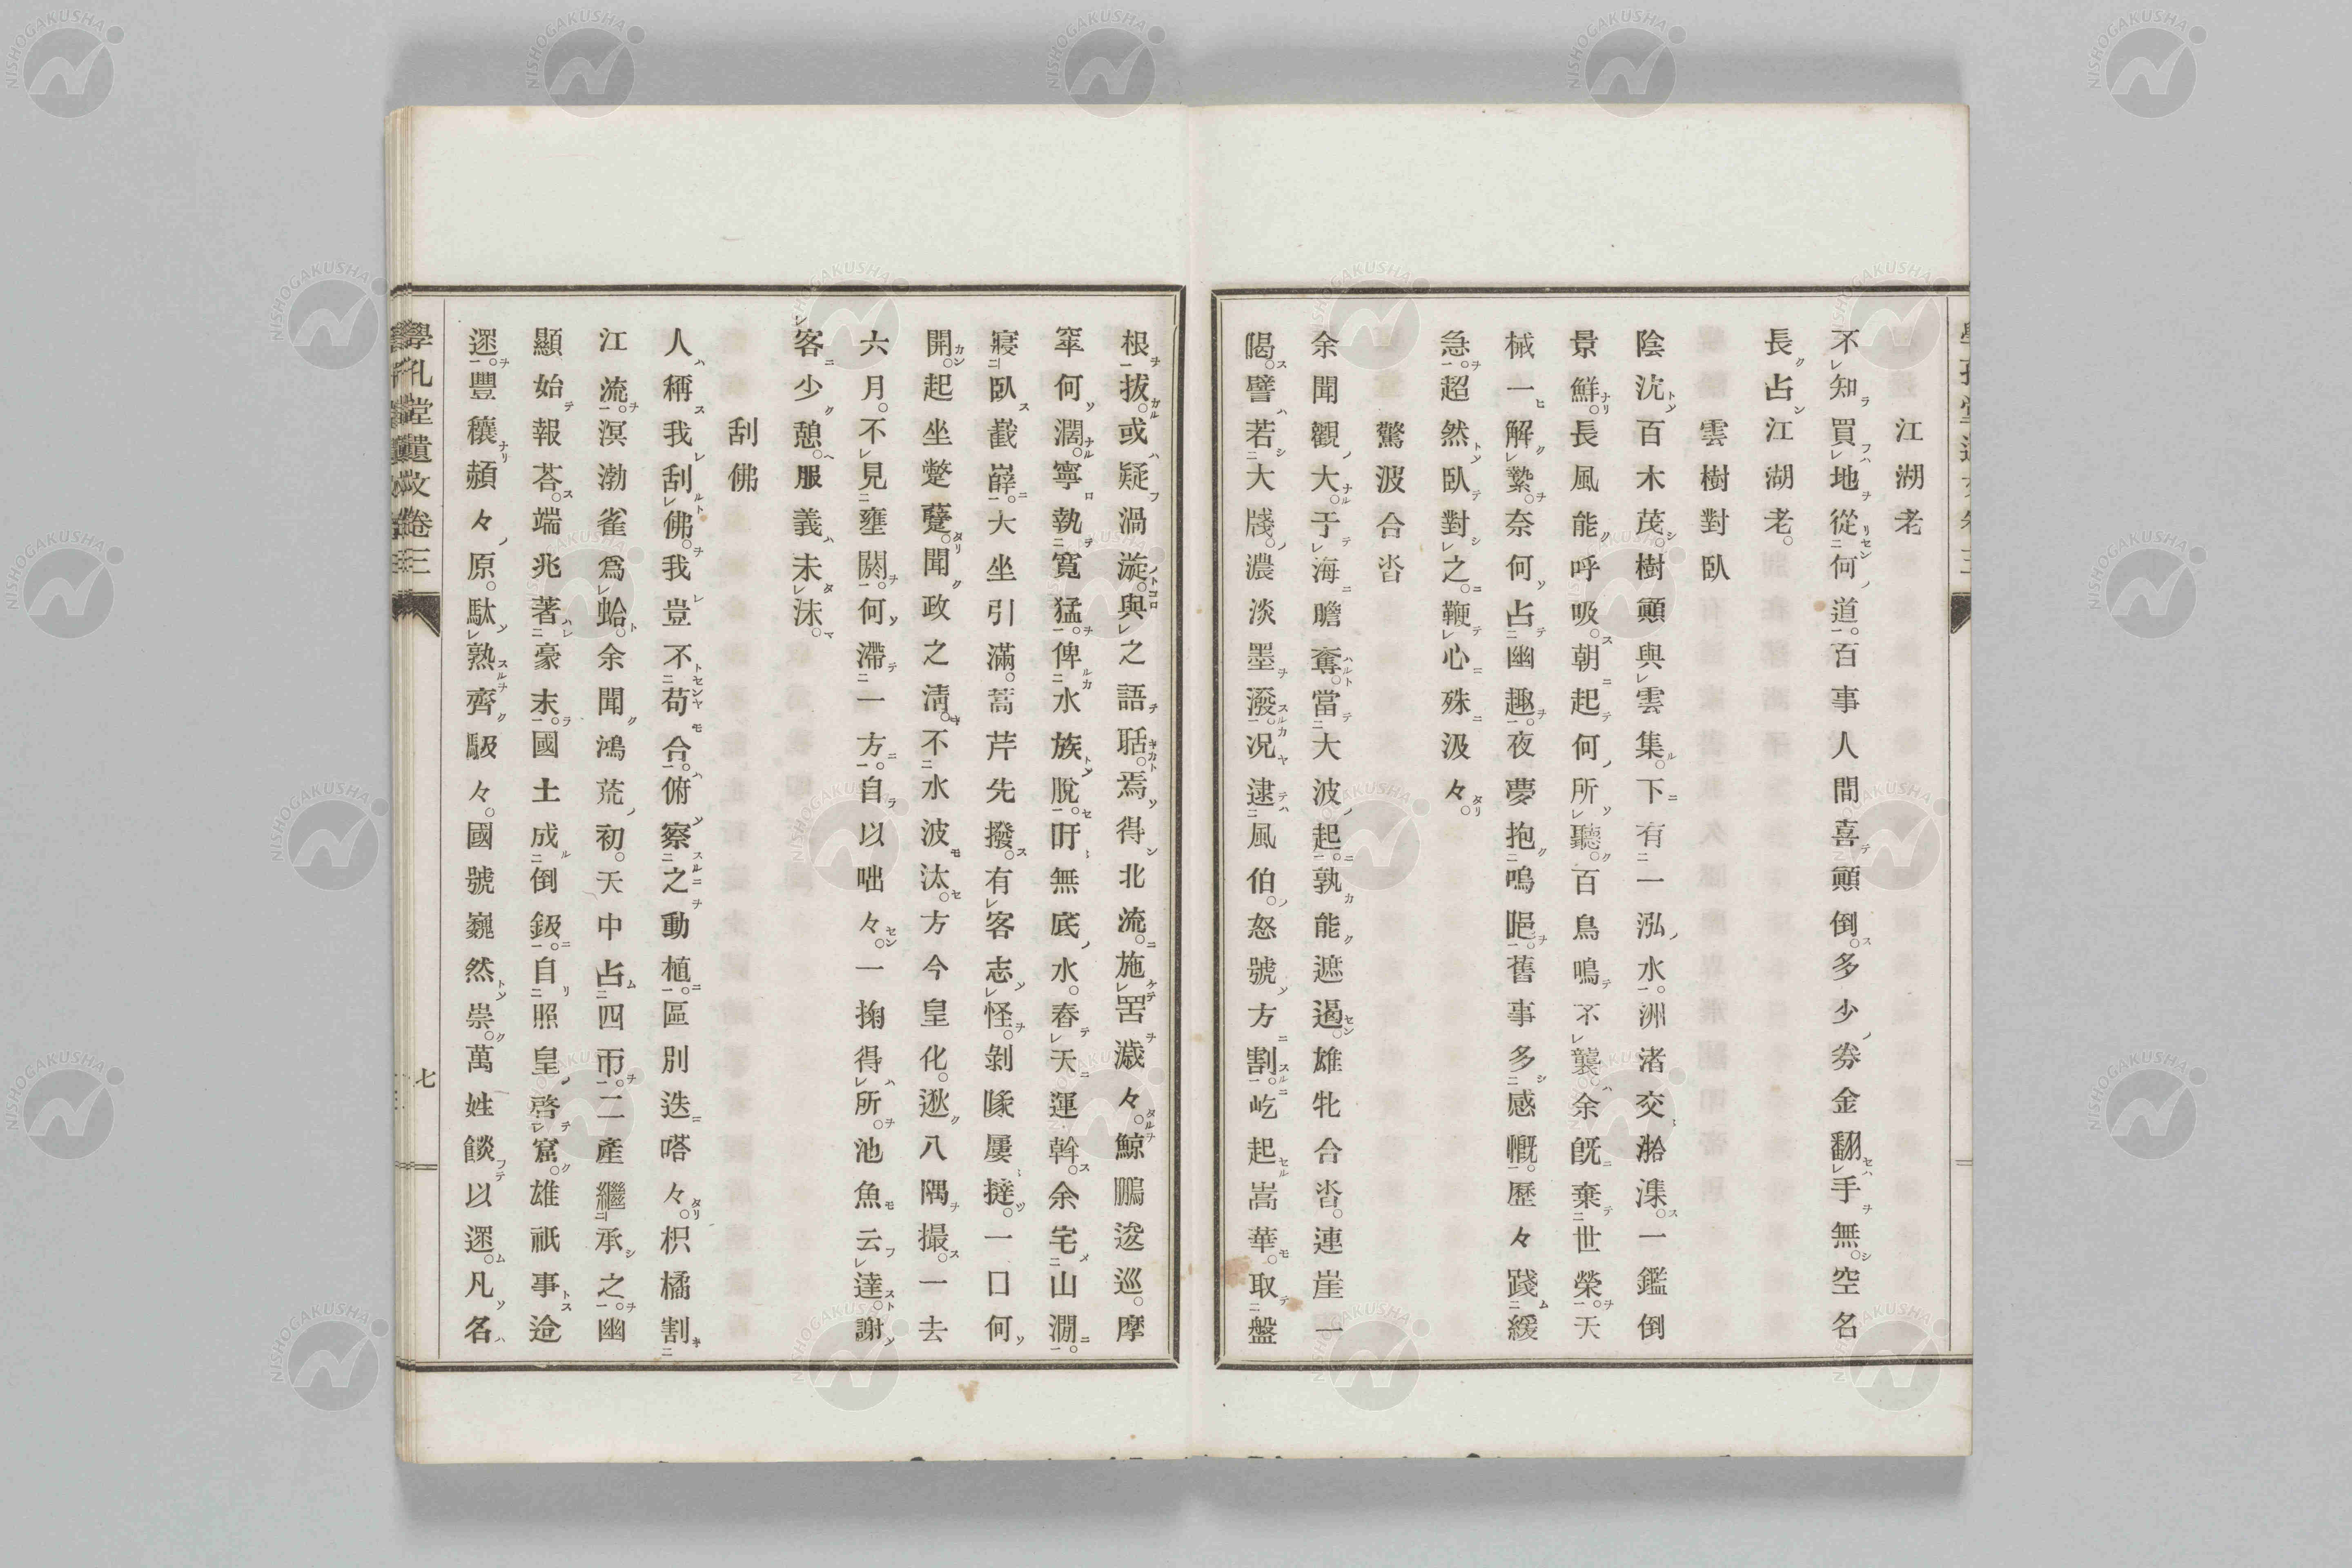 江湖老
不知買地從何道。百事人間喜顚倒。多少劵金翻手無。空名
長占江湖老。
雲樹對臥
陰沈百木茂。樹顚與雲集。下有一泓水。洲渚交湁潗。一鑑倒
景鮮。長風能呼吸。朝起何所聽。百鳥鳴不襲。余既棄世榮。天
械一解縶。奈何占幽趣。夜夢抱嗚唈。舊事多感慨。歷々踐緩
急。超然臥對之。鞭心殊汲々。
驚波合沓
余聞觀大于海。瞻奪當大波起。孰能遮遏。雄牝合沓。連崖一
陽。譬若大牋。濃淡墨潑。況逮風伯。怒號方割。屹起嵩華。取盤
根拔。或疑渦漩。與之語聒。焉得北流。施罟濊々。鯨鵬逡巡。摩
窂何濶。寧執寬猛。俾水族脫。吁無底水。春天運斡。余宅山澗。
寢臥巀嶭。大坐引滿。蒿芹先撥。有客志怪。剝啄屢撻。一口何
開。起坐蹩躠。聞政之淸。不水波汰。方今皇化。逖八隅撮。一去
六月。不見壅閼。何滯一方。自以咄々。一掬得所。池魚云達。謝
客少憩。服義未沬。
刮佛
人稱我刮佛。我豈不苟合。俯察之動植。區別迭嗒々。枳橘割
江流。溟渤雀爲蛤。余聞鴻荒初。天中占四帀。二產繼承之。幽
顯始報荅。端兆著豪末。國土成倒鈒。自照皇啓窟。雄祇事迨
遝。豐穰頳々原。馱熟齊馺々。國號巍然崇。萬姓餤以遝。凡名
學孔堂遺文卷三
七
NISHOGAKUSHA